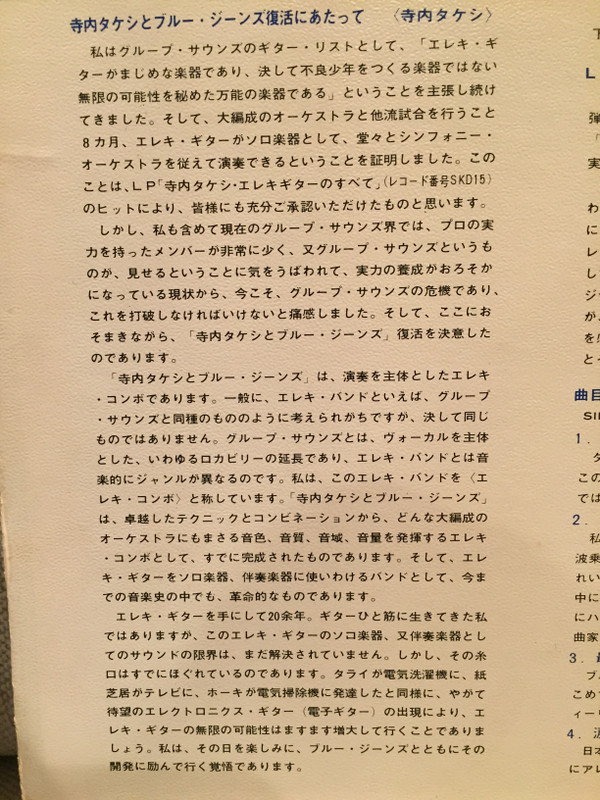 寺内タケシとブルー・ジーンズ復活にあたって 〈寺内タケシ〉
私はグループ・サウンズのギター・リストとして、「エレキ・ギ
ターがまじめな楽器であり、決して不良少年をつくる楽器ではない
無限の可能性を秘めた万能の楽器である」ということを主張し続け
てきました。そして、大編成のオーケストラと他流試合を行うこと
8カ月、エレキ・ギターがソロ楽器として、堂々とシンフォニー・
オーケストラを従えて演奏できるということを証明しました。この
ことは、LP「寺内タケシ・エレキギターのすべて」(レコード番号SKD15)
のヒットにより、皆様にも充分ご承認いただけたものと思います。
しかし、私も含めて現在のグループ・サウンズ界では、プロの実
力を持ったメンバーが非常に少く、又グループ・サウンズというも
のが、見せるということに気をうばわれて、実力の養成がおろそか
になっている現状から、今こそ、グループ・サウンズの危機であり、
これを打破しなければいけないと痛感しました。そして、ここにお
そまきながら、「寺内タケシとブルー・ジーンズ」復活を決意した
のであります。
「寺内タケシとブルー・ジーンズ」は、演奏を主体としたエレキ
・コンボであります。一般に、エレキ・バンドといえば、グループ
・サウンズと同種のもののように考えられがちですが、決して同じ
ものではありません。グループ・サウンズとは、ヴォーカルを主体
とした、いわゆるロカビリーの延長であり、エレキ・バンドとは音
楽的にジャンルが異なるのです。私は、このエレキ・バンドを〈エ
レキ・コンボ〉と称しています。「寺内タケシとブルー・ジーンズ」
は、卓越したテクニックとコンビネーションから、どんな大編成の
オーケストラにもまさる音色、音質、音域、音量を発揮するエレキ
・コンボとして、すでに完成されたものであります。そして、エレ
キ・ギターをソロ楽器、伴奏楽器に使いわけるバンドとして、今ま
での音楽史の中でも、革命的なものであります。
エレキ・ギターを手にして20余年。ギターひと筋に生きてきた私
ではありますが、このエレキ・ギターのソロ楽器、又伴奏楽器とし
てのサウンドの限界は、まだ解決されていません。しかし、その糸
口はすでにほぐれているのであります。タライが電気洗濯機に、紙
芝居がテレビに、ホーキが電気掃除機に発達したと同様に、やがて
待望のエレクトロニクス・ギター(電子ギター)の出現により、エ
レキ・ギターの無限の可能性はますます増大して行くことでありま
しょう。私は、その日を楽しみに、ブルー・ジーンズとともにその
開発に励んで行く覚悟であります。
下
L
弾
「
実
わ
に
レ
し
ジ
が
を
と
曲目
1.
タ
この
では
2.
私
波乗
れい
中に
にハ
曲家
3.
ブ
こめ
ィー
4.
日本
にアレ